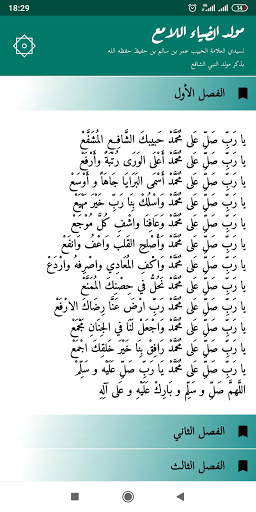 18:29
34
مولد الضياء اللامع
لسيدي العلامة الحبيب عمر بن سالم بن حفيظ حفظه الله
بذكر مولد النبي الشافع
الفصل الأول
يا رَبِّ صَلِّ عَلى مُحَمَّدْ حَبِيبِكَ الشَّافِعِ المُشَفَّعْ
يا رَبِّ صَلِّ عَلى مُحَمَّدْ أَعْلَى الوَرَى رُتْبَةً وأَرْفَعْ
يا رَبِّ صَلِّ عَلى مُحَمَّدْ أَسْمَى البَرَايا جَاهاً و أَوْسَعْ
يا رَبِّ صَلِّ عَلى مُحَمَّدْ وَاسْلُكْ بِنا رَبِّ خَيْرَ مَهْيَعْ
يا رَبِّ صَلِّ عَلى مُحَمَّدْ وَعَافِنا وَاشْفِ كُلَّ مُوْجَعْ
يا رَبِّ صَلِّ عَلى مُحَمَّدْ وَأَصْلِحِ القَلْبَ وَاعْفُ وَانْفَعْ
يا رَبِّ صَلِّ عَلى مُحَمَّدْ وَاكْفِ المُعَادِي وَاصْرِفْهُ وَارْدَعْ
يا رَبِّ صَلِّ عَلى مُحَمَّدْ نَحُلُّ في حِصْنِكَ المُمَنَّعْ
يا رَبِّ صَلِّ عَلى مُحَمَّدْ رَبِّ ارْضَ عَنَّا رِضَاكَ الارْفَعْ
يا رَبِّ صَلِّ عَلى مُحَمَّدْ وَاجْعَلْ لَنَا في الجِنَانِ مَجْمَعْ
يا رَبِّ صَلِّ عَلى مُحَمَّدْ رَافِقْ بِنَا خَيْرَ خَلْقِكَ اجْمَعْ
يا رَبِّ صَلِّ عَلى مُحَمَّدْ يَا رَبِّ صَلِّ عَلَيْهِ و سَلِّمْ
اللَّهُمَّ صَلِّ و سَلِّمْ و بَارِكْ عَلَيْهِ و عَلَى آلِهِ
الفصل الثاني
الفصل الثالث